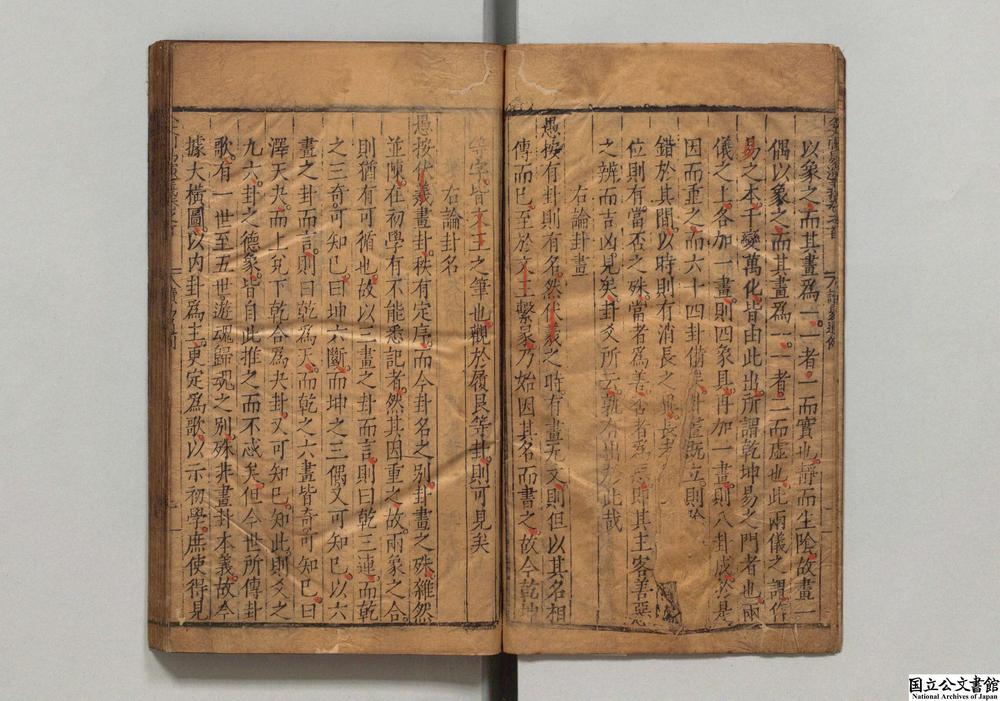 以象之而其畫爲一一者一而實也靜而生陰故畫一
偶以象之而其畫爲一一者二而虛也此兩儀之謂作
易之本千變萬化皆由此出所謂乾坤易之門者也兩
儀之上各加一畫則四象具再加一畫則八卦成於是
因而重之而六十四卦備矣卦位既立則
錯於其間以時則有消長之
位則有當否之殊當者爲善否者爲惡即其主客善惡
之辨而吉凶見矣卦爻所云孰有出於此哉
右論卦畫
愚按有卦則有名然伏羲之時有畫无文則但以其名相
傳而已至於文王繫彖乃始因其名而書之故今乾坤
等字皆文王之筆也觀於履艮等卦則可見矣
右論卦名
愚按伏羲畫卦秩有定序而今卦名之別卦畫之殊雜然
並陳在初學有不能悉記者然其因重之故兩象之合
則猶有可循也故以三畫之卦而言則曰乾三連而乾
之三奇可知已曰坤六斷而坤之三偶又可知已以六
畫之卦而言則曰乾爲天而乾之六畫皆奇可知已曰
澤天夬而上兌下乾合爲夬卦又可知已知此則文之
九六卦之德象皆自此推之而不惑矣但今世所傳卦
歌有一世至五世遊魂歸魂之別殊非畫卦本義故今
據大橫圖以內卦爲主更定爲歌以示初學庶使得見
国立公文書館
National Archives of Japan